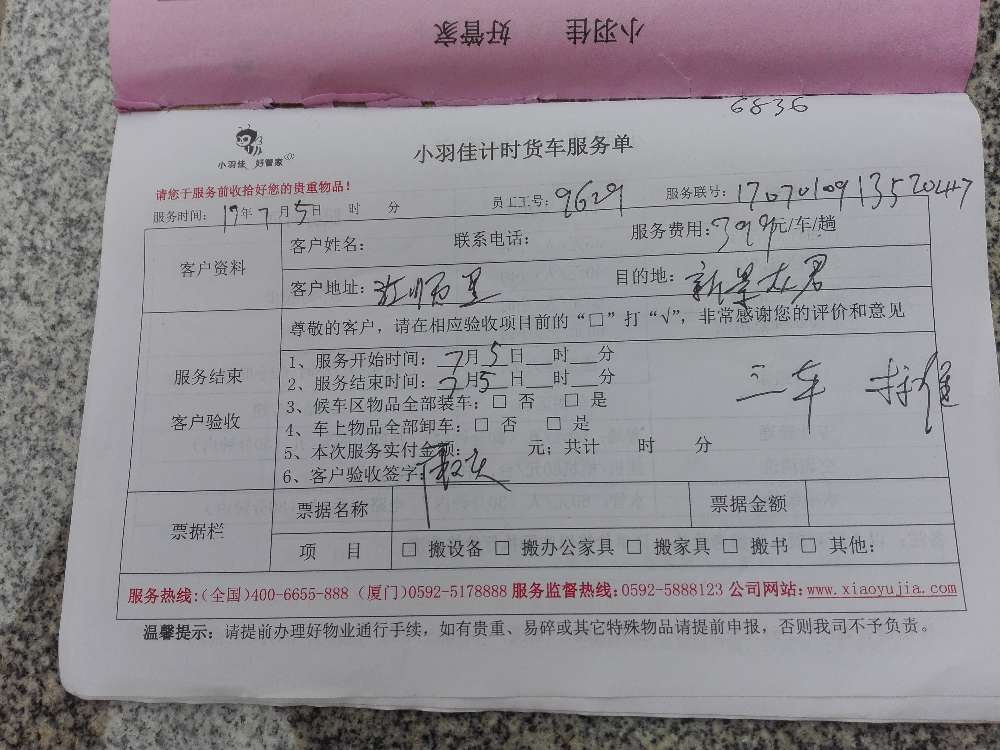 小羽佳 好管家
6836
小羽佳 好管家
小羽佳计时货车服务单
请您于服务前收拾好您的贵重物品！
服务时间：17年7月5日 时 分 员工工号：9629 服务联号：1707010913520447
客户资料 客户姓名： 联系电话： 服务费用：399元/车/趟
客户地址： 目的地：
尊敬的客户，请在相应验收项目前的“□”打“√”，非常感谢您的评价和意见
服务结束
客户验收
1、服务开始时间：7月5日__时__分
2、服务结束时间：7月5日__时__分
三车
3、候车区物品全部装车：□ 否 □ 是
4、车上物品全部卸车：□ 否 □ 是
5、本次服务实付金额： 元；共计 时 分
6、客户验收签字：
票据栏 票据名称 票据金额
项 目 □ 搬设备 □ 搬办公家具 □ 搬家具 □ 搬书 □ 其他：
服务热线：（全国）400-6655-888（厦门）0592-5178888 服务监督热线：0592-5888123 公司网站：www.xiaoyujia.com
温馨提示：请提前办理好物业通行手续，如有贵重、易碎或其它特殊物品请提前申报，否则我司不予负责。